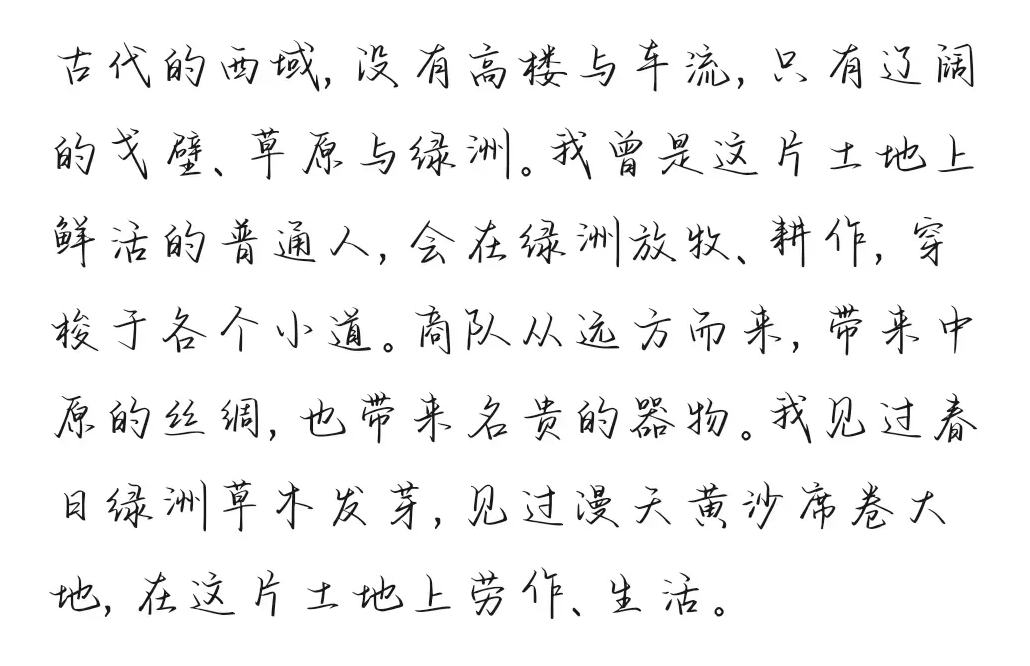 古代的西域,没有高楼与车流,只有辽阔
的戈壁、草原与绿洲。我曾是这片土地上
鲜活的普通人,会在绿洲放牧、耕作,穿
梭于各个小道。商队从远方而来,带来中
原的丝绸,也带来名贵的器物。我见过春
日绿洲草木发芽,见过漫天黄沙席卷大
地,在这片土地上劳作、生活。